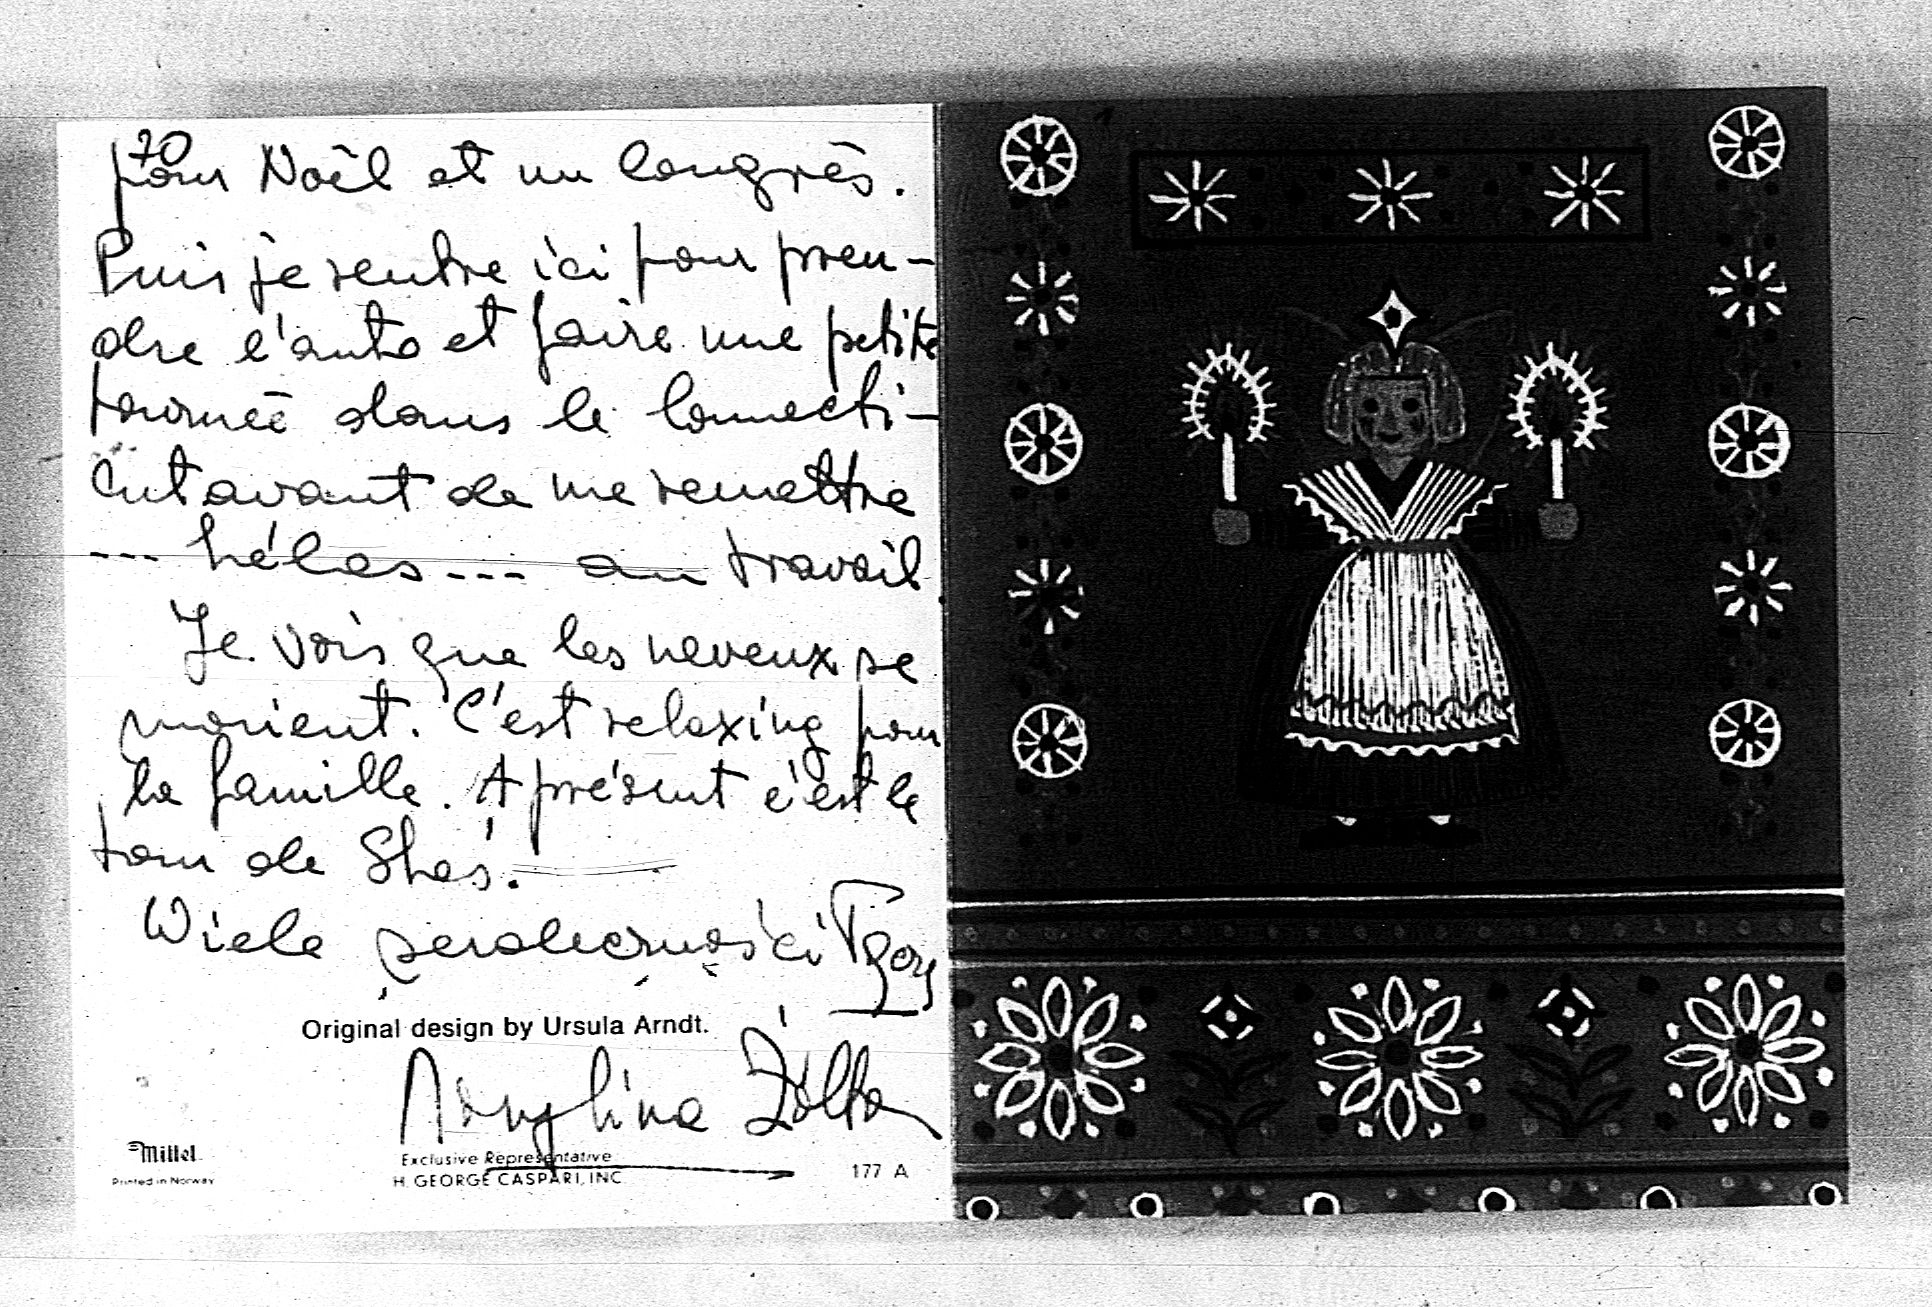 70
pour Noël et un Congrès.
Puis je rentre ici pour pren-
dre l'auto et faire une petite
tournée dans le Connecti-
cut avant de me remettre
--- hélas --- au travail
Je vois que les neveux se
marient. C'est relaxing pour
la famille. A présent c'est le
tour de Shas.
Wiele serdeczności
Original design by Ursula Arndt.
Angelina Żółta
Mittet
Printed in Norway
Exclusive Representative
H. GEORGE CASPARI, INC
177 A